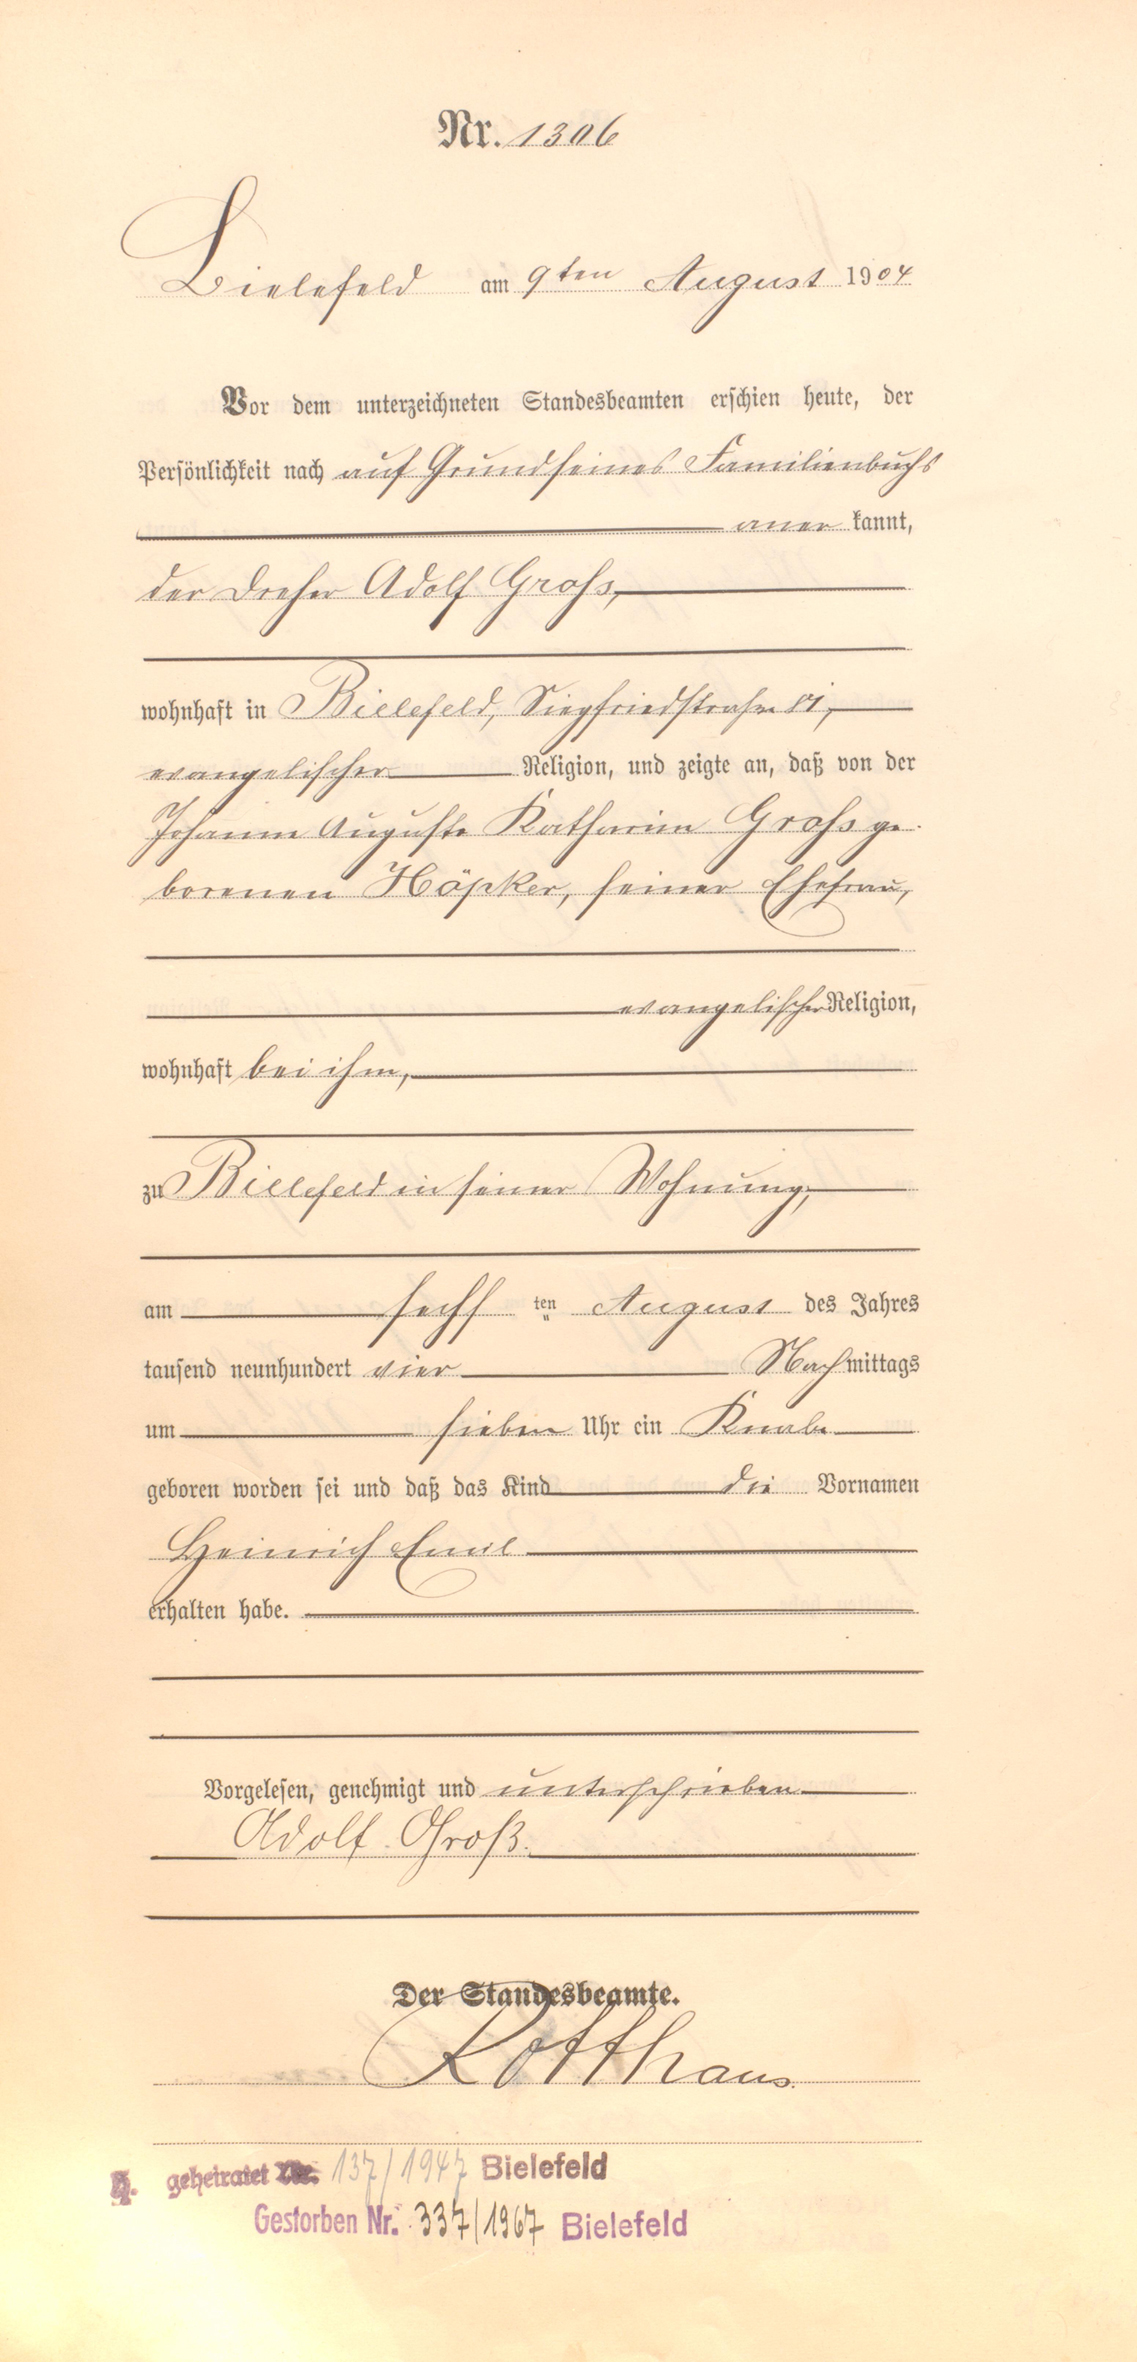 Nr. 1306
Bielefeld am 9ten August 1904
Vor dem unterzeichneten Standesbeamten erschien heute, der
Persönlichkeit nach auf Grund seines Familienbuchs
aner kannt,
der Dreher Adolf Groß,
wohnhaft in Bielefeld, Siegfriedstraße
evangelischer Religion, und zeigte an, daß von der
Johanne Auguste Katharine Groß ge-
borenen Höpker, seiner Ehefrau,
evangelischer Religion,
wohnhaft bei ihm,
zu Bielefeld in seiner Wohnung,
am sechs ten August des Jahres
tausend neunhundert vier Nachmittags
um sieben Uhr ein Knabe
geboren worden sei und daß das Kind die Vornamen
Heinrich Emil
erhalten habe.
Vorgelesen, genehmigt und unterschrieben
Adolf Groß.
Der Standesbeamte.
Kotthaus.
geheiratet Nr. 137/1947 Bielefeld
Gestorben Nr. 337/1967 Bielefeld